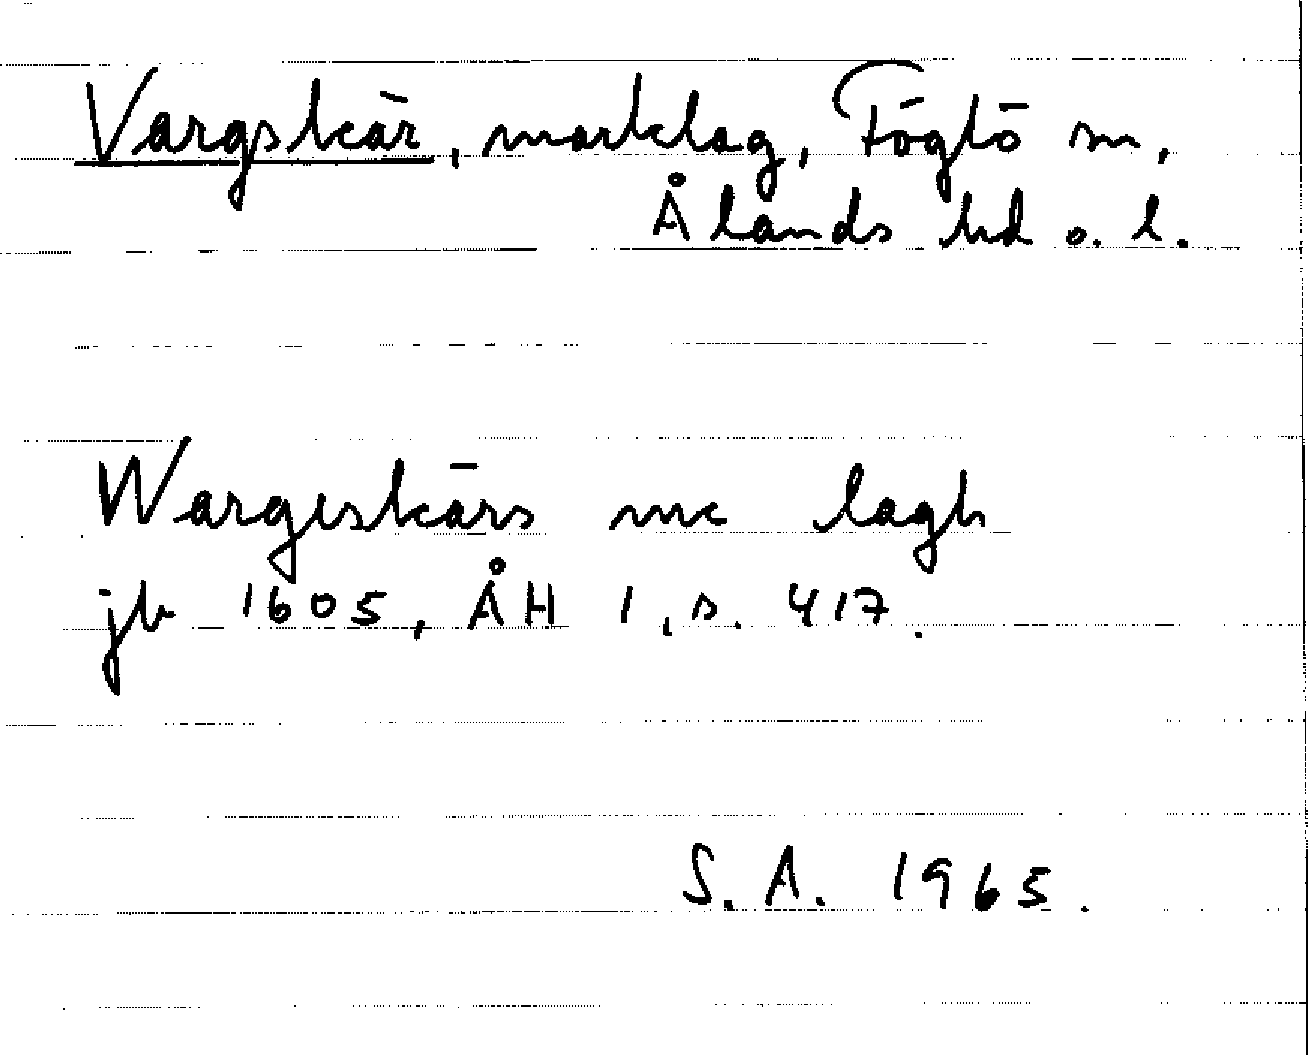 Vargskär, marklag, Föglö sn,
Ålands hd o. l.
Wargeskärs mc lagh
jb 1605, ÅH 1, s. 417.
S. A. 1965.